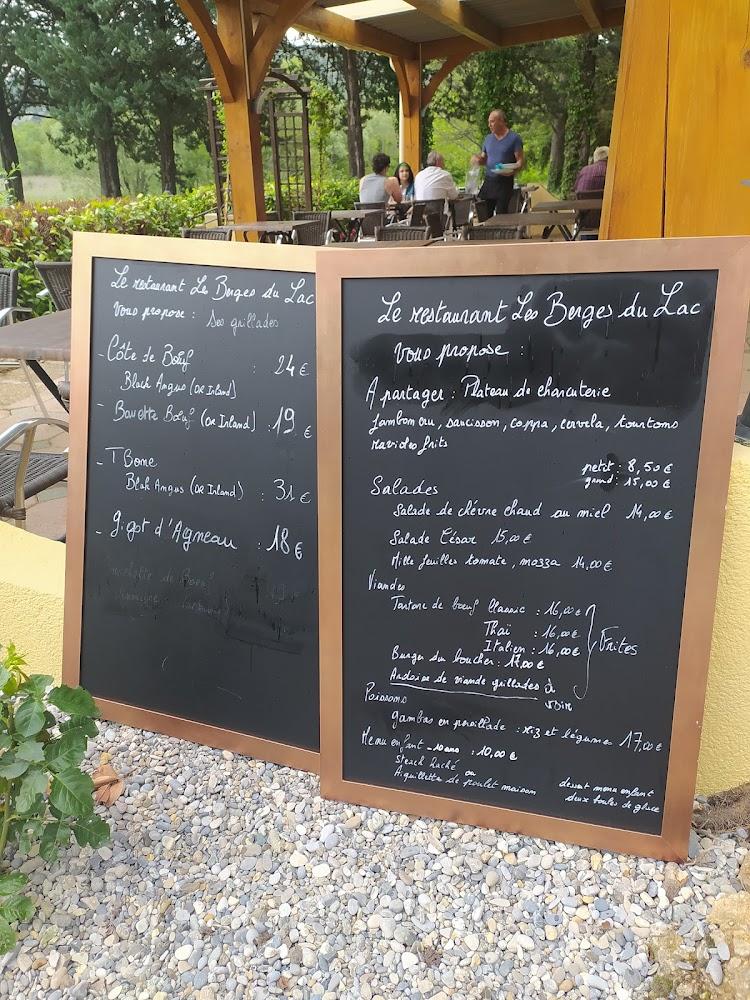 Le restaurant Les Berges du Lac
Vous propose : Ses grillades
- Côte de Bœuf : 24 €
Black Angus (OR Irland)
- Bavette Bœuf (OR Irland) : 19 €
- T Bone
Blak Angus (OR Irland) : 31 €
- gigot d'Agneau : 18 €
Le restaurant Les Berges du Lac
Vous propose :
A partager : Plateau de charcuterie
Jambon cru, saucisson, coppa, cervela, tourtons
ravioles frits
petit : 8,50 €
grand : 15,00 €
Salades
Salade de chèvre chaud au miel 14,00 €
Salade César 15,00 €
Mille feuilles tomate, mozza 14,00 €
Viandes
Tartare de bœuf Classic : 16,00 €
Thaï : 16,00 €
Italien : 16,00 €
Frites
Burger du boucher : 17,00 €
Ardoise de viande grillades à
voir
Poissons
gambas en persillade : riz et légumes 17,00 €
Menu enfant - 10 ans : 10,00 €
Steack haché ou
Aiguillette de poulet maison
dessert menu enfant
deux boules de glace